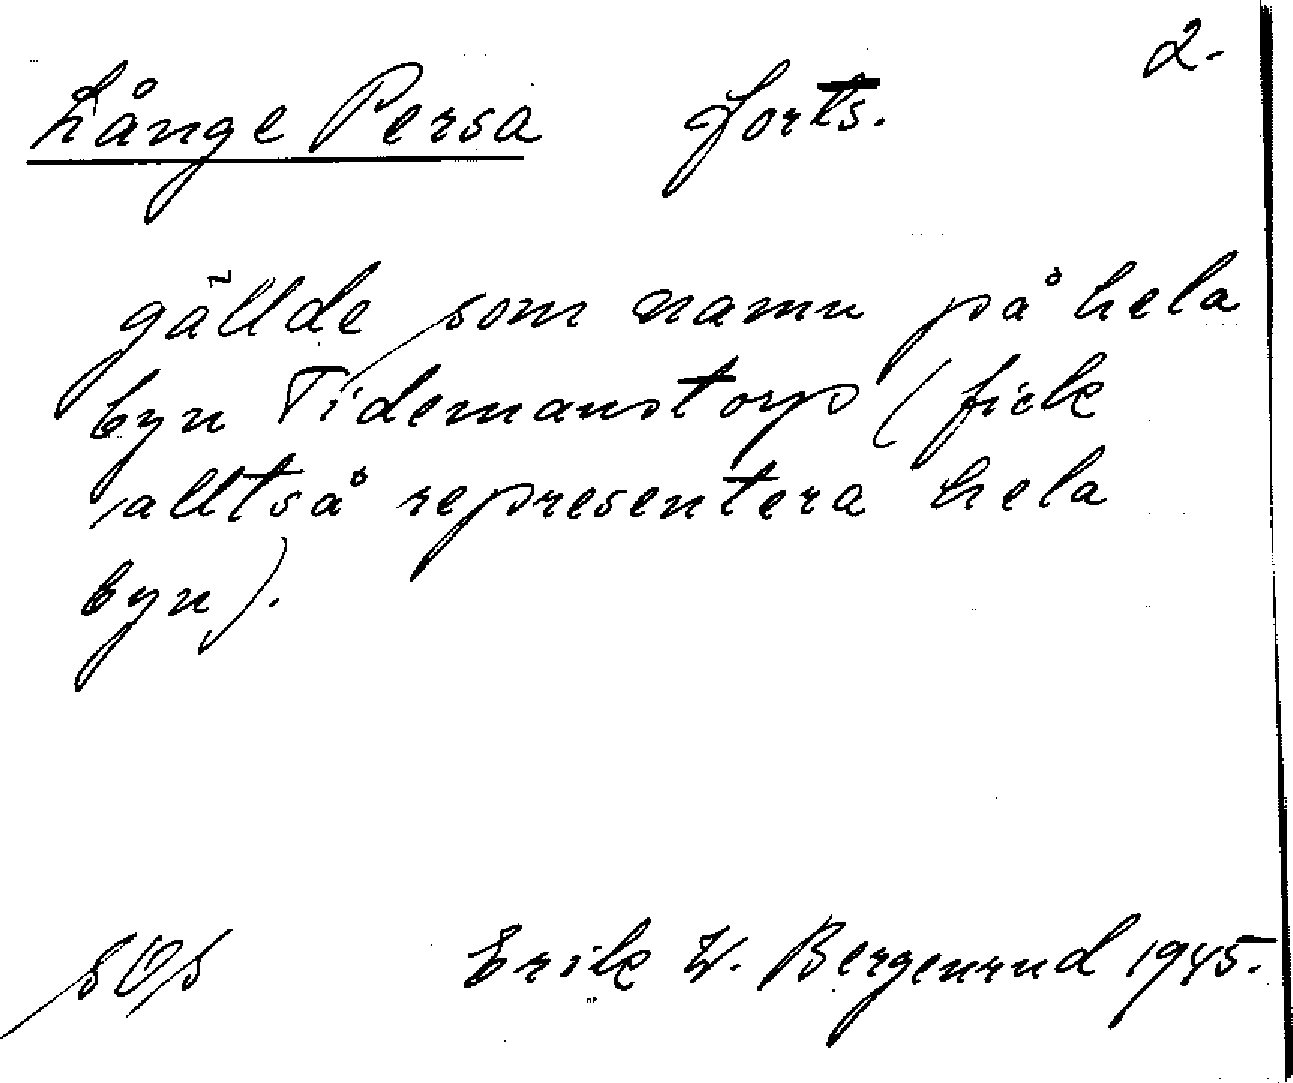 2.
Långe Persa forts.
gällde som namn på hela
byn Tidemanstorp (fick
alltså representera hela
byn).
Erik W. Bergenrud 1945.